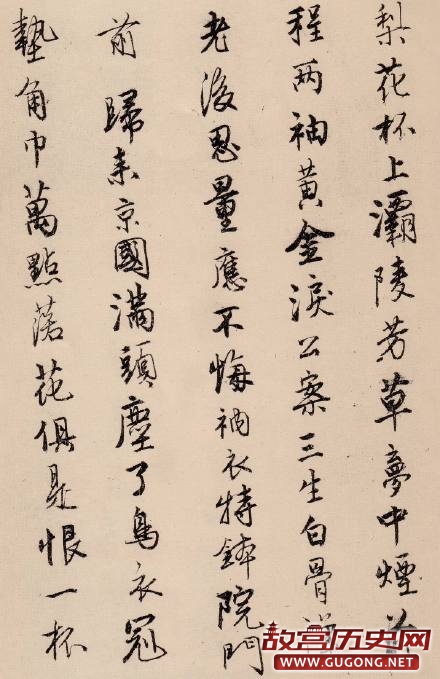 梨花杯上灞陵芳草夢中煙前
程两袖黄金淚公案三生白骨
老後思量應不悔衲衣持鉢院門
前 歸来京國滿頭塵了鳥衣冠
墊角巾萬點落花俱是恨一杯
故宫历史网
WWW.GUGONG.NET